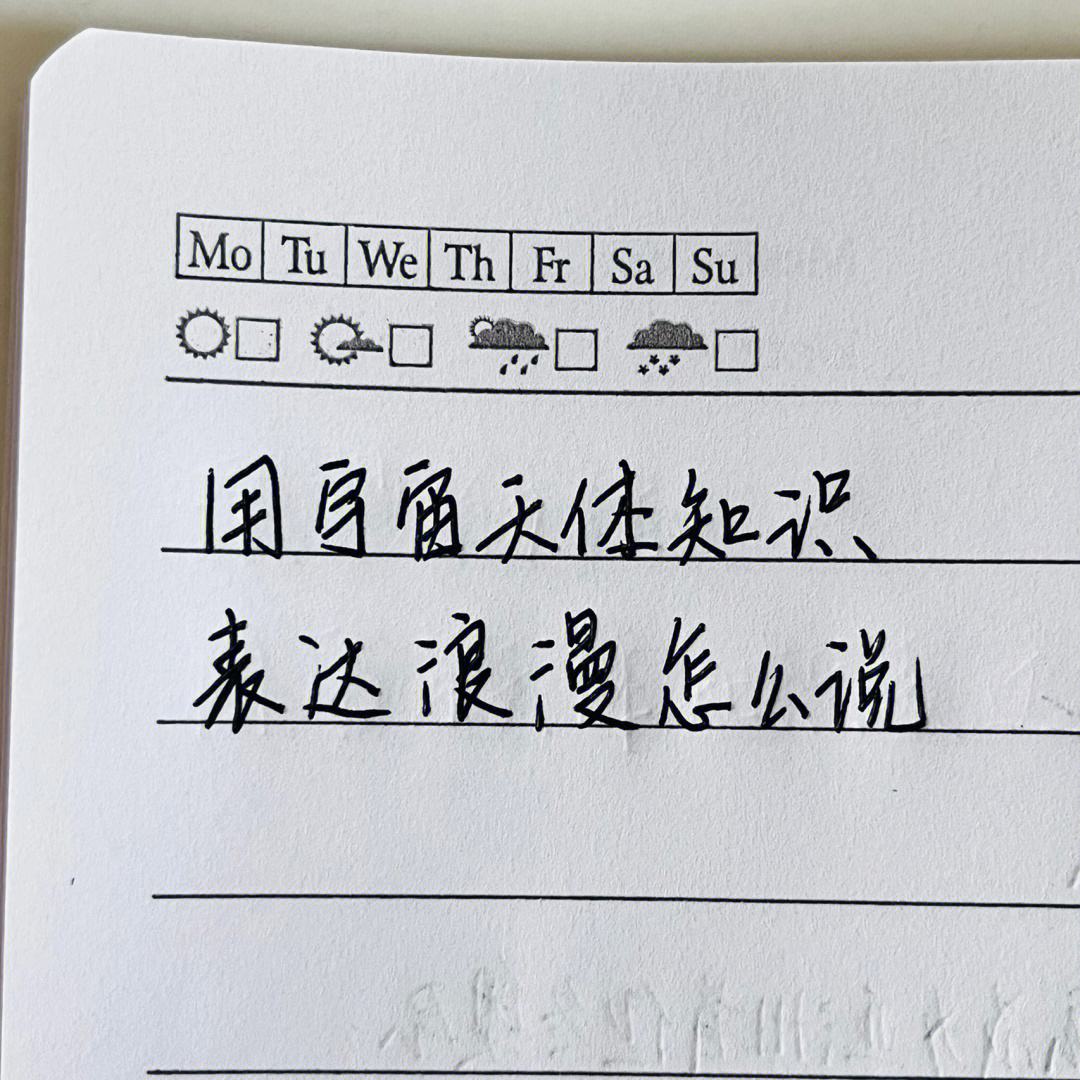 Mo Tu We Th Fr Sa Su
用宇宙天体知识
表达浪漫怎么说